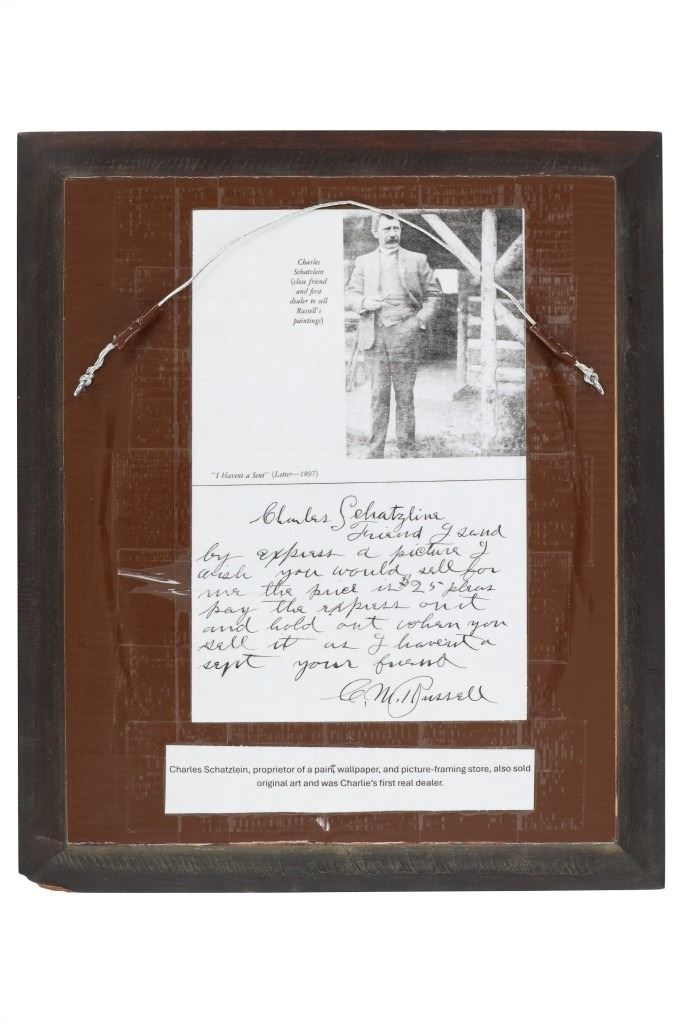 Charles
Schatzlein
(close friend
and first
dealer to sell
Russell's
paintings)
"I Havent a Sent" (Letter—1897)
Charles Schatzline
Friend I sand
by express a picture I
wish you would sell for
me the price is $25 pleas
pay the express on it
and hold out when you
sell it as I havent a
sept your friend
C. M. Russell
Charles Schatzlein, proprietor of a paint, wallpaper, and picture-framing store, also sold
original art and was Charlie's first real dealer.